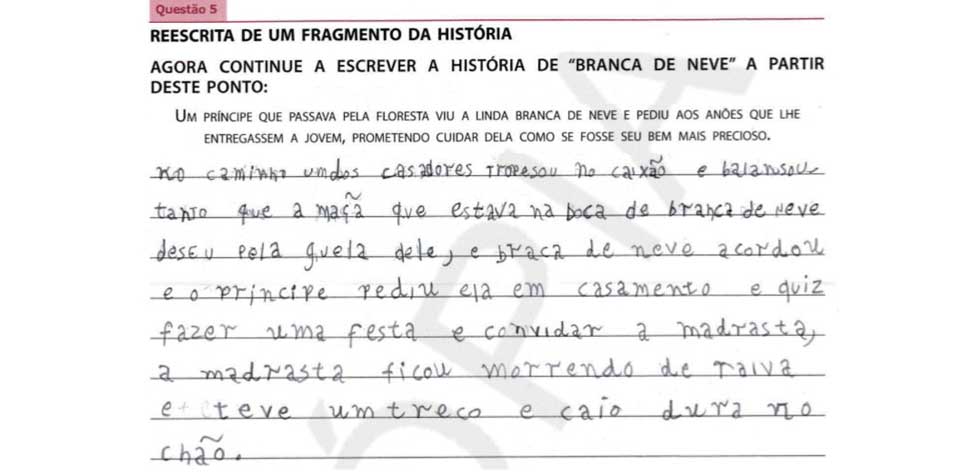 Questão 5
REESCRITA DE UM FRAGMENTO DA HISTÓRIA
AGORA CONTINUE A ESCREVER A HISTÓRIA DE “BRANCA DE NEVE” A PARTIR
DESTE PONTO:
UM PRÍNCIPE QUE PASSAVA PELA FLORESTA VIU A LINDA BRANCA DE NEVE E PEDIU AOS ANÕES QUE LHE
ENTREGASSEM A JOVEM, PROMETENDO CUIDAR DELA COMO SE FOSSE SEU BEM MAIS PRECIOSO.
no caminho um dos casadores tropesou no caixão e balansou
tanto que a maçã que estava na boca de branca de neve
deseu pela guela dele, e braca de neve acordou
e o principe pediu ela em casamento e quiz
fazer uma festa e convidar a madrasta,
a madrasta ficou morrendo de raiva
e teve um treco e caio dura no
chão.